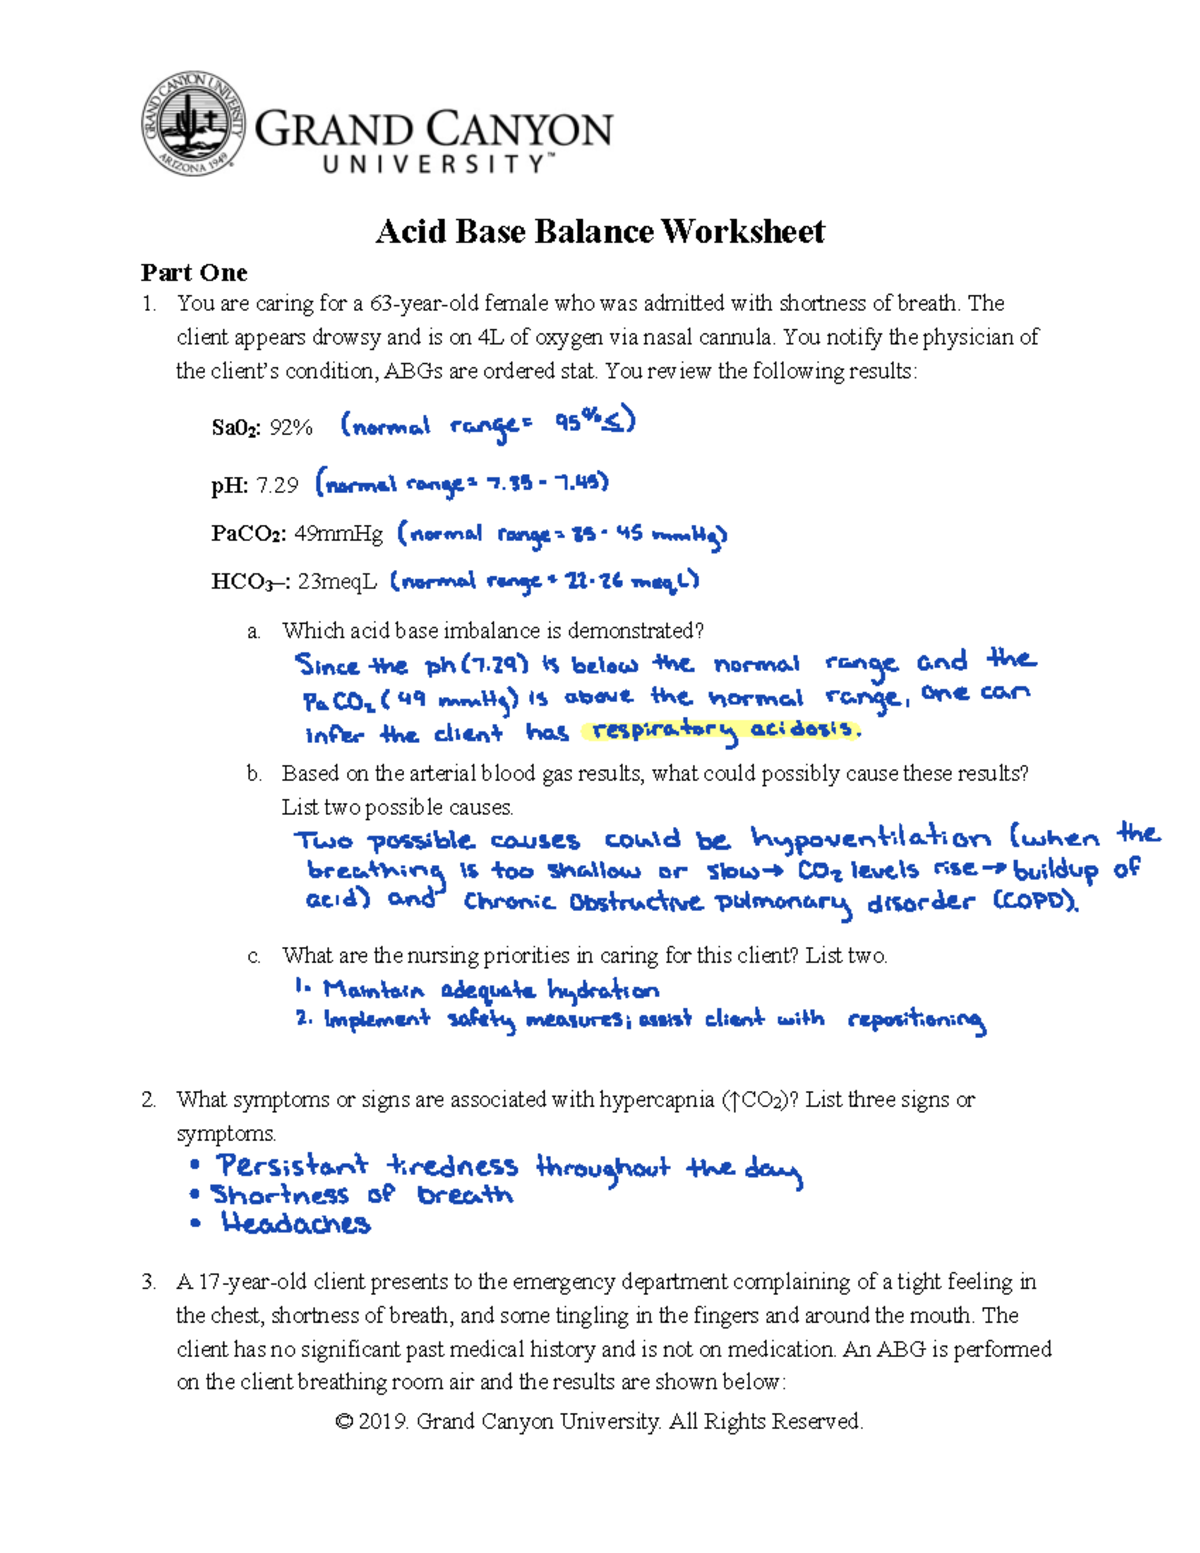 GRAND CANYON UNIVERSITY
ARIZONA 1949
GRAND CANYON
UNIVERSITY™
Acid Base Balance Worksheet
Part One
1. You are caring for a 63-year-old female who was admitted with shortness of breath. The
client appears drowsy and is on 4L of oxygen via nasal cannula. You notify the physician of
the client's condition, ABGs are ordered stat. You review the following results:
Sa0₂: 92% (normal range= 95%≤)
pH: 7.29 (normal range= 7.35 - 7.45)
PaCO₂: 49mmHg (normal range= 35 - 45 mmHg)
HCO₃–: 23meqL (normal range = 22-26 meqL)
a. Which acid base imbalance is demonstrated?
Since the ph (7.29) is below the normal range and the
PaCO₂ (49 mmHg) is above the normal range, one can
infer the client has respiratory acidosis.
b. Based on the arterial blood gas results, what could possibly cause these results?
List two possible causes.
Two possible causes could be hypoventilation (when the
breathing is too shallow or slow→ CO₂ levels rise→buildup of
acid) and Chronic Obstructive pulmonary disorder (COPD).
c. What are the nursing priorities in caring for this client? List two.
1. Maintain adequate hydration
2. Implement safety measures; assist client with repositioning
2. What symptoms or signs are associated with hypercapnia (↑CO₂)? List three signs or
symptoms.
• Persistant tiredness throughout the day
• Shortness of breath
• Headaches
3. A 17-year-old client presents to the emergency department complaining of a tight feeling in
the chest, shortness of breath, and some tingling in the fingers and around the mouth. The
client has no significant past medical history and is not on medication. An ABG is performed
on the client breathing room air and the results are shown below:
© 2019. Grand Canyon University. All Rights Reserved.